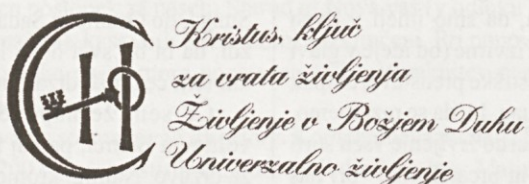 Kristus, ključ
za vrata življenja
Življenje v Božjem Duhu
Univerzalno življenje